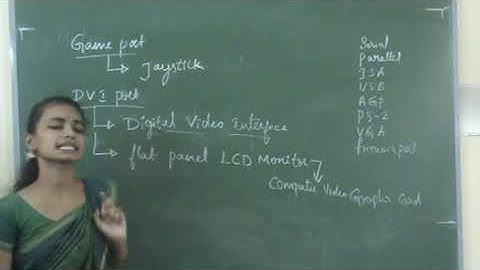 Game port
Joystick
DVI port
Digital Video Interface
flat panel LCD Monitor
Computer Video Graphic Card
Serial
Parallel
ISA
USB
AGP
PS-2
VGA